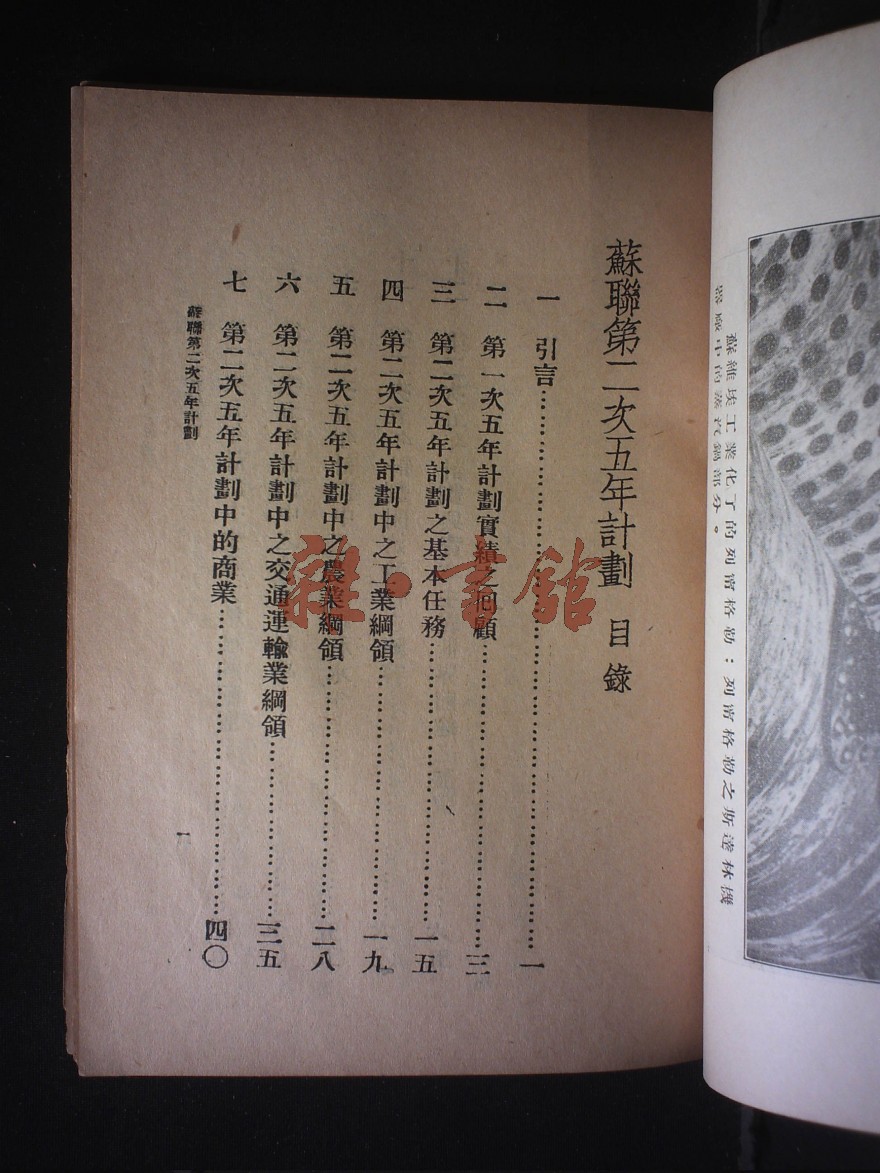 蘇維埃工業化了的列甯格勒：列甯格勒之斯達林機
器廠中的蒸汽鍋部分。
蘇聯第二次五年計劃 目錄
一 引言……一
二 第一次五年計劃實績之回顧……三
三 第二次五年計劃之基本任務……一五
四 第二次五年計劃中之工業綱領……一九
五 第二次五年計劃中之農業綱領……二八
六 第二次五年計劃中之交通運輸業綱領……三五
七 第二次五年計劃中的商業……四〇
蘇聯第二次五年計劃
一
雜·書館